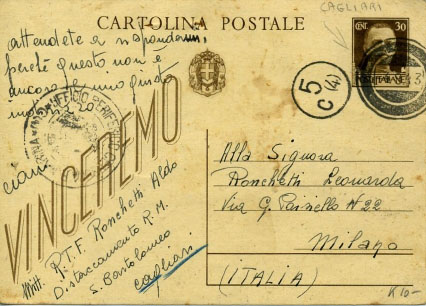 CARTOLINA POSTALE
CAGLIARI
CENT. 30
POSTE ITALIANE
attendete a rispondermi,
perché questo non è
ancora il mio giusto
ciao
5
C (4)
VINCEREMO
Mitt. R.T.F. Ronchetti Aldo
Distaccamento R.M.
S. Bartolomeo
Cagliari
Alla Signora
Ronchetti Leonarda
Via G. N 22
Milano
(ITALIA)
K 10-